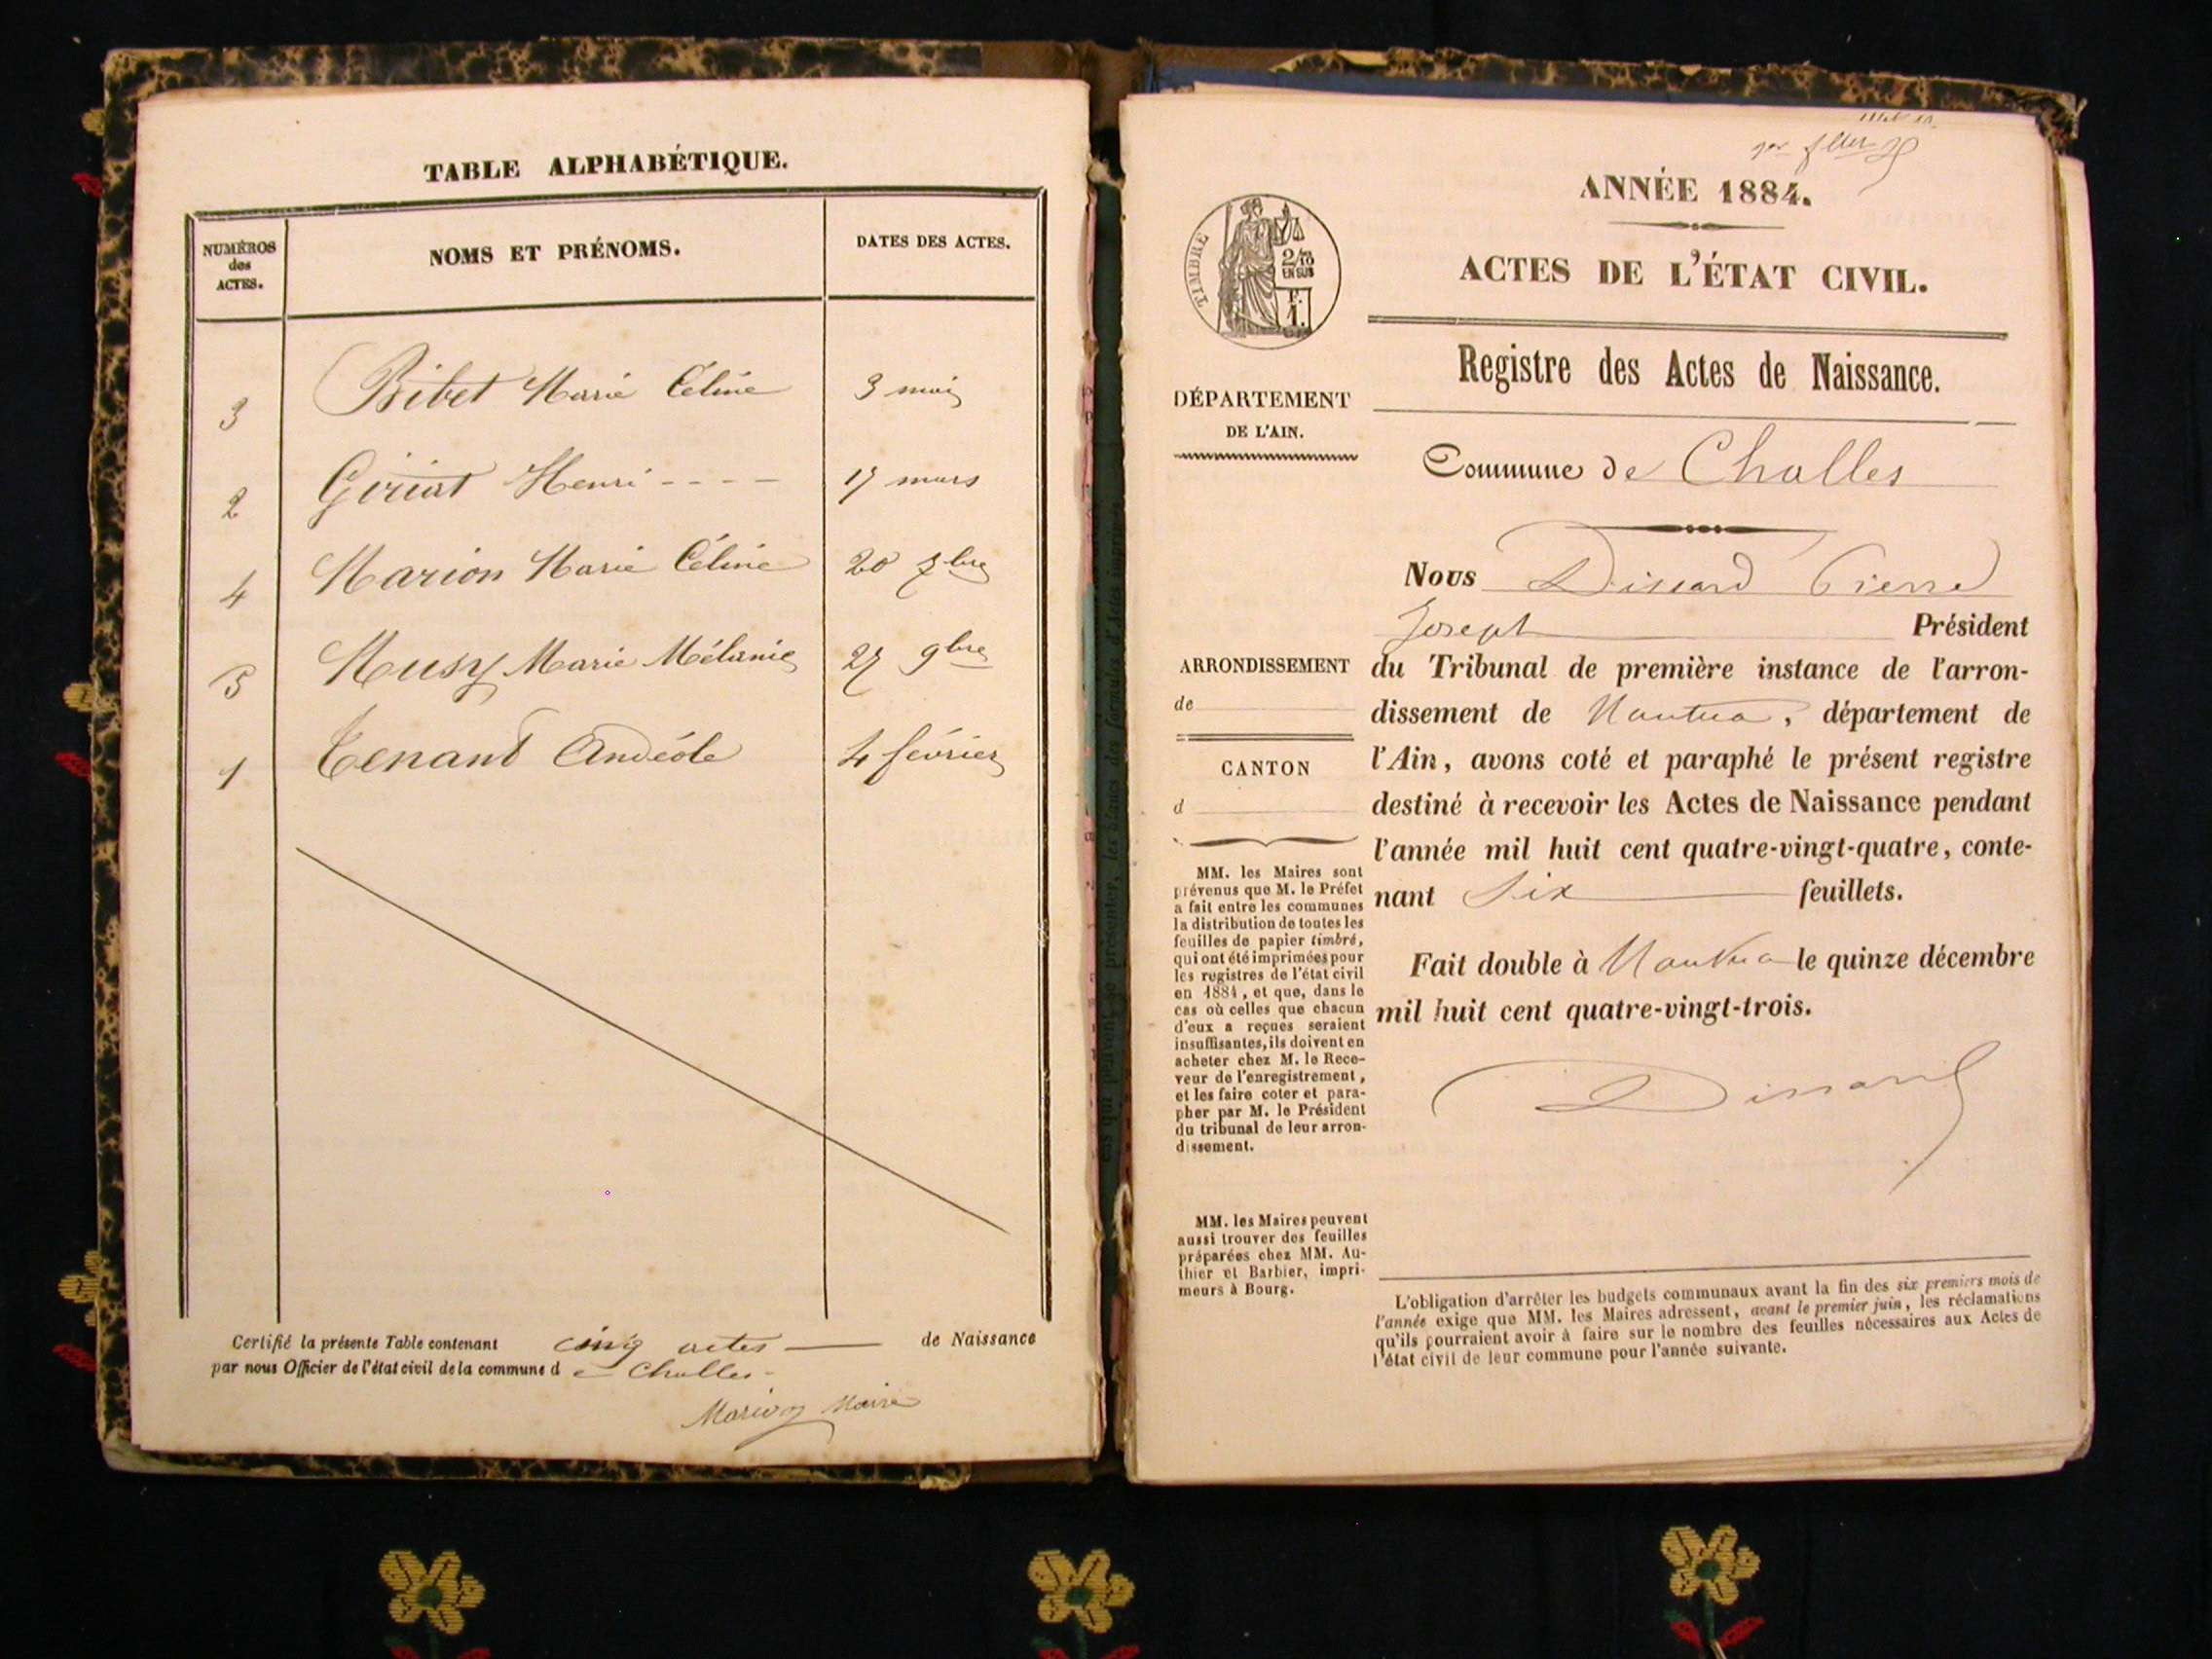 TABLE ALPHABÉTIQUE.
NUMÉROS
des
ACTES.
NOMS ET PRÉNOMS.
DATES DES ACTES.
3 Bibet Marie Céline 3 mai
2 Giriat Henri - - - - 17 mars
4 Marion Marie Céline 20 7bre
5 Musy Marie Mélanie 27 9bre
1 Tenand Andéole 4 février
Certifié la présente Table contenant cinq actes de Naissance
par nous Officier de l'état civil de la commune d e Challes
Marion Maire
1er
ANNÉE 1884.
ACTES DE L'ÉTAT CIVIL.
TIMBRE
2/10
EN SUS
Registre des Actes de Naissance.
DÉPARTEMENT
DE L'AIN.
Commune de Challes
Nous Pierre
Joseph Président
du Tribunal de première instance de l'arron-
dissement de Nantua, département de
l'Ain, avons coté et paraphé le présent registre
destiné à recevoir les Actes de Naissance pendant
l'année mil huit cent quatre-vingt-quatre, conte-
nant Six feuillets.
Fait double à Nantua le quinze décembre
mil huit cent quatre-vingt-trois.
ARRONDISSEMENT
de
CANTON
d
MM. les Maires sont
prévenus que M. le Préfet
a fait entre les communes
la distribution de toutes les
feuilles de papier timbré,
qui ont été imprimées pour
les registres de l'état civil
en 1884, et que, dans le
cas où celles que chacun
d'eux a reçues seraient
insuffisantes, ils doivent en
acheter chez M. le Rece-
veur de l'enregistrement,
et les faire coter et para-
pher par M. le Président
du tribunal de leur arron-
dissement.
MM. les Maires peuvent
aussi trouver des feuilles
préparées chez MM. Au-
thier et Barbier, impri-
meurs à Bourg.
L'obligation d'arrêter les budgets communaux avant la fin des six premiers mois de
l'année exige que MM. les Maires adressent, avant le premier juin, les réclamations
qu'ils pourraient avoir à faire sur le nombre des feuilles nécessaires aux Actes de
l'état civil de leur commune pour l'année suivante.